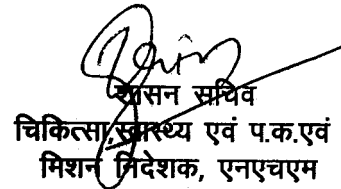 शासन सचिव
चिकित्सा,स्वास्थ्य एवं प.क.एवं
मिशन निदेशक, एनएचएम